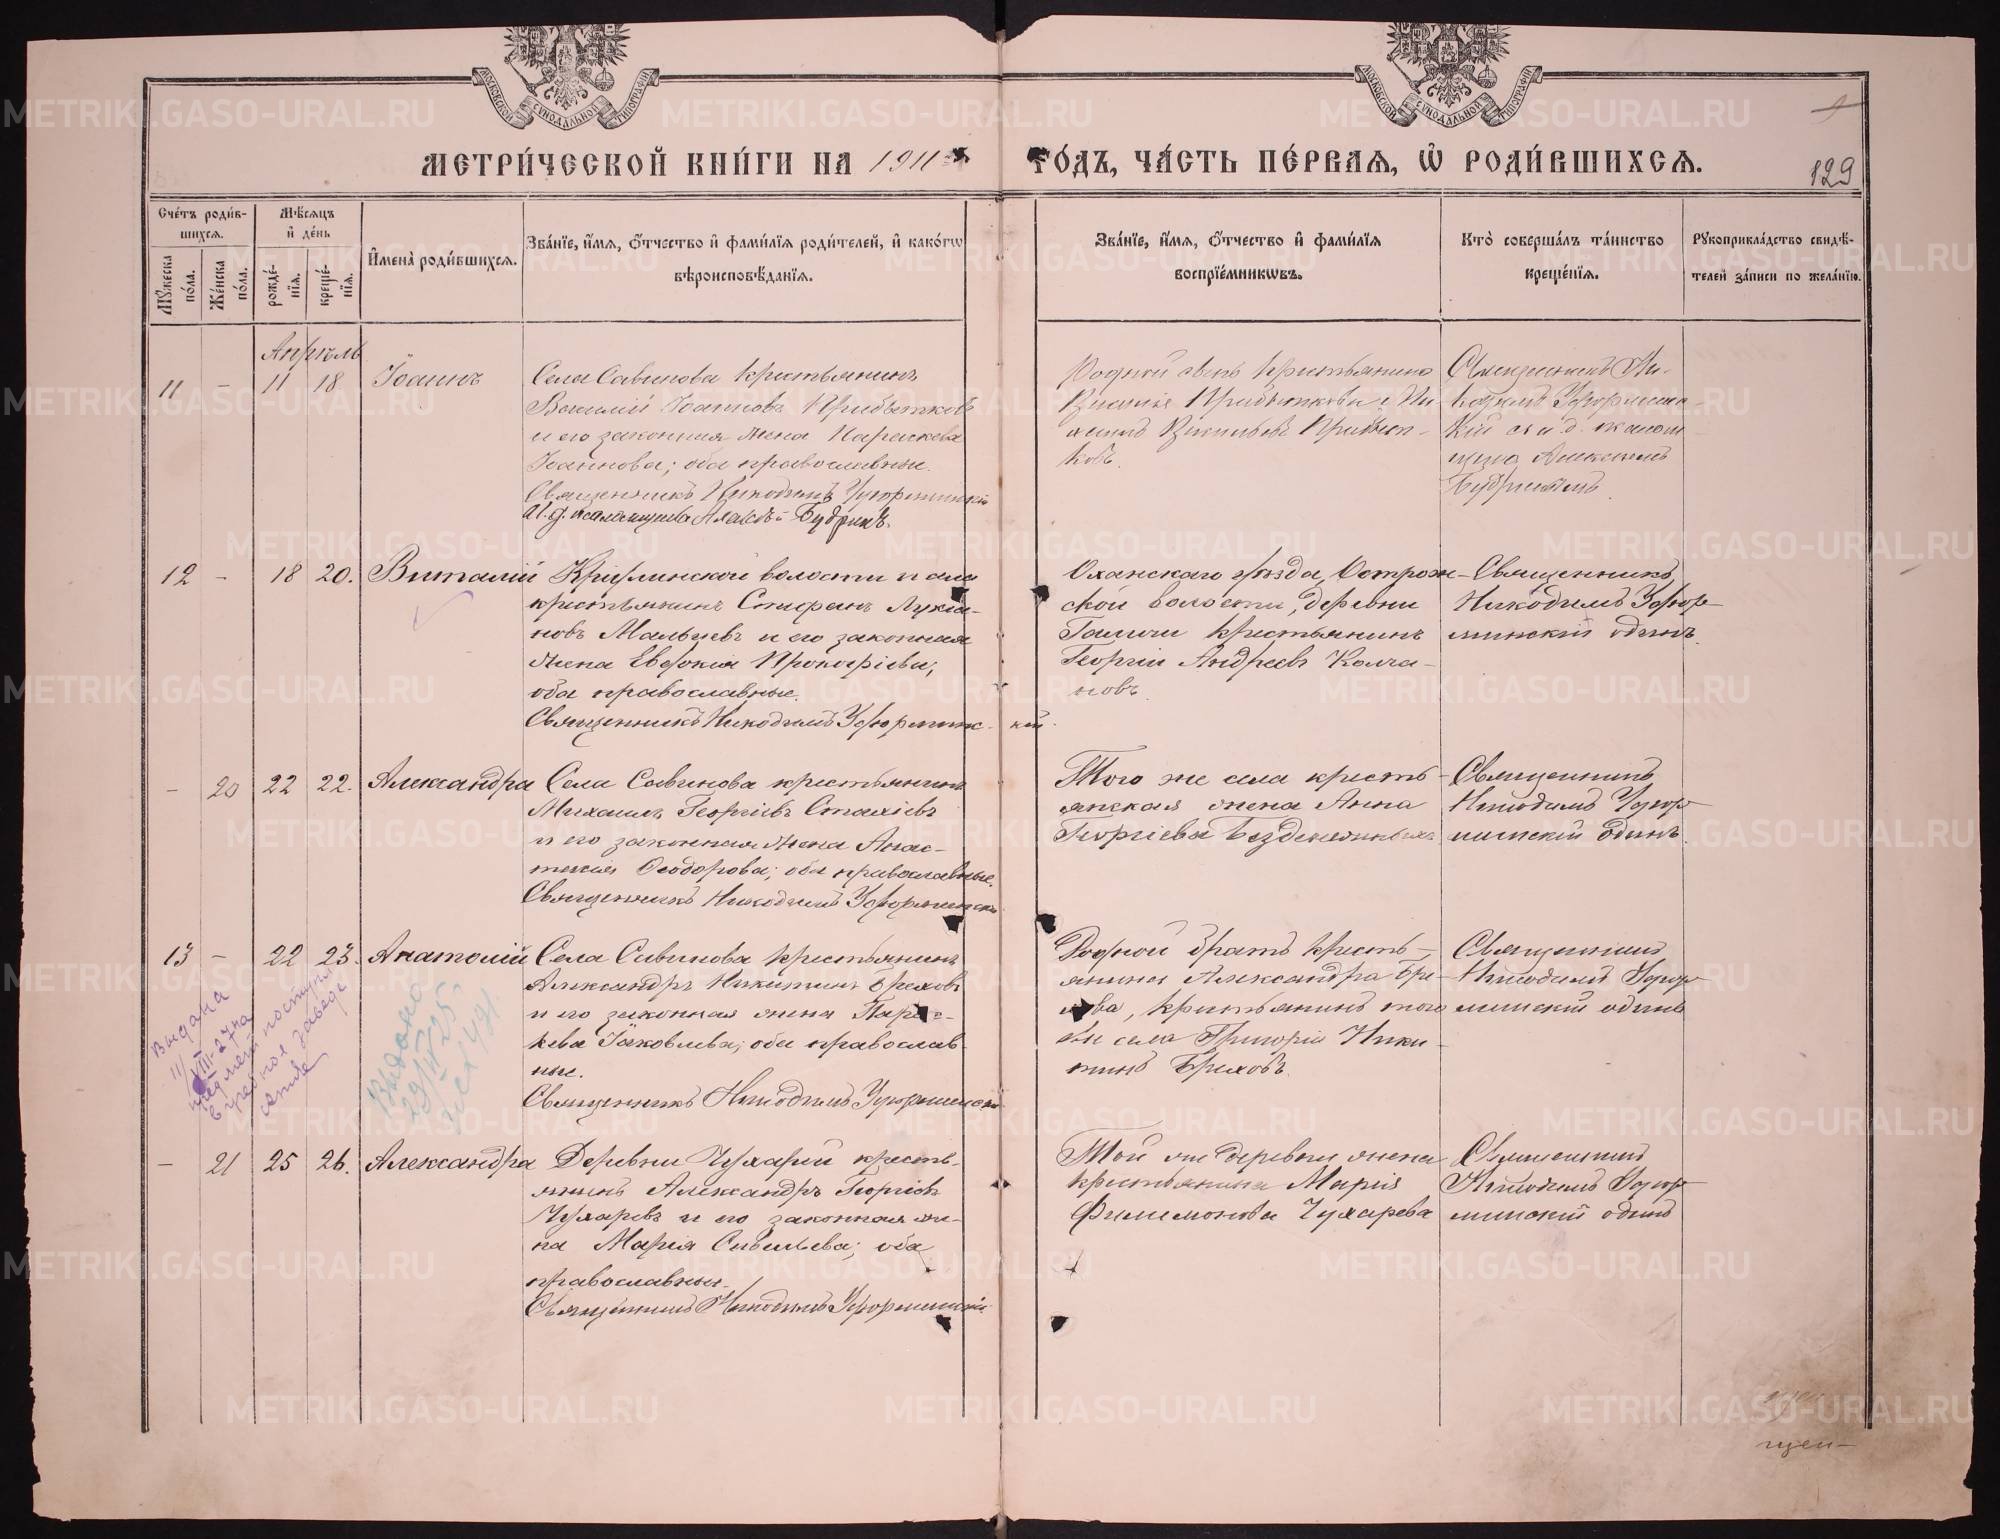 МОСКОВСКОЙ СѴНОДАЛЬНОЙ ТИПОГРАФІИ
МОСКОВСКОЙ СѴНОДАЛЬНОЙ ТИПОГРАФІИ
МЕТРИ́ЧЕСКОЙ КНИ́ГИ НА 1911
ГО́ДЪ, ЧА́СТЬ ПЕ́РВАѦ, Ѽ РОДИ́ВШИХСѦ.
129
Сче́тъ роди́в-
шихсѧ.
Мѣ́сѧцъ
и҆ де́нь
Мꙋ́жеска по́ла.
Же́нска по́ла.
рожде́-
нїѧ.
креще́-
нїѧ.
И҆мена̀ роди́вшихсѧ.
Зва́нїе, и҆́мѧ, ѻ҆́тчество и҆ фами́лїѧ роди́телей, и҆ како́гѡ
вѣроисповѣ́данїѧ.
Зва́нїе, и҆́мѧ, ѻ҆́тчество и҆ фами́лїѧ
воспрїе́мникѡвъ.
Кто̀ соверша́лъ та́инство
креще́нїѧ.
Рꙋкоприкла́дство свидѣ́-
телей за́писи по жела́нїю.
Апрѣль
11 - 11 18 Іоаннъ
Села Савинова крестьянинъ
Василий Іоанновъ Прибытковъ
и его законная жена Параскева
Іоаннова; оба православные.
Священникъ Никодимъ Уформинскій
И. д. псаломщика Алексѣй Будринъ.
Родной сынъ крестьянина
Василія Прибыткова
Васильевъ Прибыт-
ковъ.
Священникъ Ни-
кодимъ Уформинс-
кій съ и. д. псалом-
щика Алексѣемъ
Будринымъ.
12 - 18 20. Виталій
волости и села
крестьянинъ Стефанъ Лукіа-
новъ Мальцевъ и его законная
жена Евдокія Прокофіева;
оба православные.
Священникъ Никодимъ Уформинс-кій.
Оханскаго уѣзда, Острож-
ской волости, деревни
Галичи крестьянинъ
Георгій Андреевъ Колча-
новъ.
Священникъ
Никодимъ Уфор-
минскій одинъ.
- 20 22 22. Александра
Села Савинова крестьянинъ
Михаилъ Георгіевъ Стахіевъ
и его законная жена Анас-
тасія Ѳеодорова; оба православные.
Священникъ Никодимъ Уформинскій
Того же села кресть-
янская жена Анна
Георгіева Безденежныхъ
Священникъ
Никодимъ Уфор-
минскій одинъ.
13 - 22 23. Анатолій
Села Савинова крестьянинъ
Александръ Никитинъ Бреховъ
и его законная жена Парас-
кева Іаковлева; оба православ-
ные.
Священникъ Никодимъ Уформинскій
Родной братъ кресть-
янина Александра Бре-
хова, крестьянинъ того
же села Григорій Ники-
тинъ Бреховъ.
Священникъ
Никодимъ Уфор-
минскій одинъ
Выдана
11/VIII-27 на
предмет поступл
в учебное заведе
ение
Выдано
29/IV 25.
- 21 25 26. Александра
Деревни Чухарей кресть-
янинъ Александръ Георгіевъ
Чухаревъ и его законная же-
на Марія Савельева; оба
православные.
Священникъ Никодимъ Уформинскій
Той же деревни жена
крестьянина Марія
Филимонова Чухарева
Священникъ
Никодимъ Уфор-
минскій одинъ
METRIKI.GASO-URAL.RU